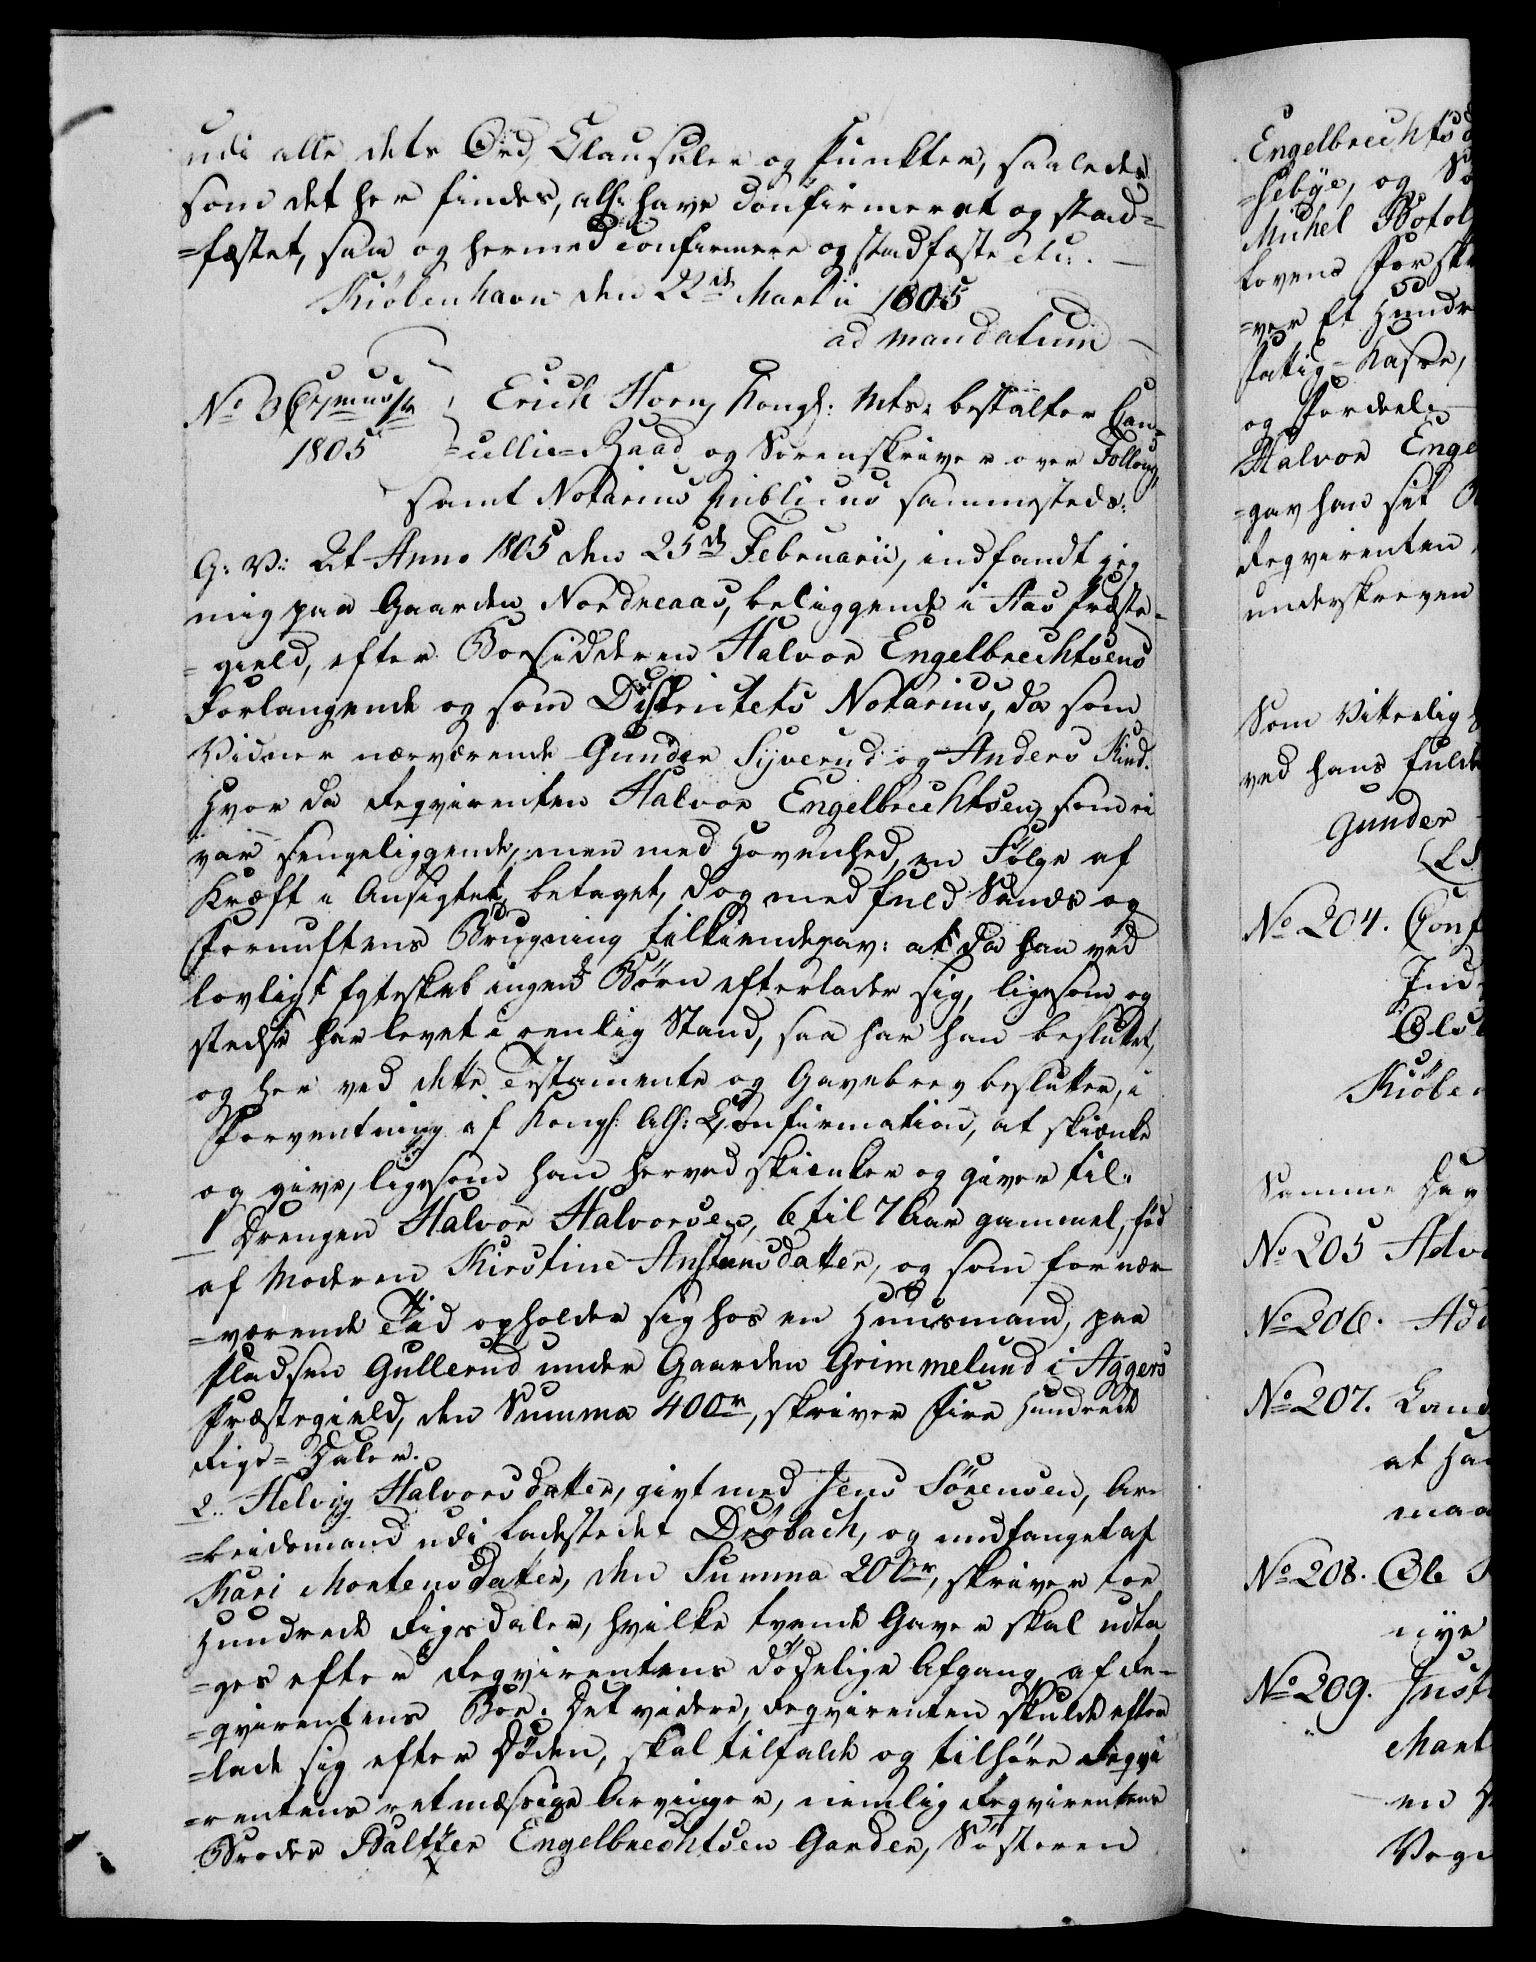 udi alle dets Ord, Clausuler og Punkter, saaledes
som det her findes, alln: have confirmeret og stad=
=fæstet, saa og hermed confirmere og stadfæste etc: . —
Kiöbenhavn den 22de Martii 1805
ad mandatum —
No 3
1805
Erich Horn, Kongl: Mts. bestalter Can=
=cellie=Raad og Sorenskriver over Follong,
samt Notarius Publicus sammesteds:
G: V: At Anno 1805 den 25de Februarii, indfandt jeg
mig paa Gaarden Nordreaas, beliggende i Aas Præste=
=gield, efter Boesidderen Halvor Engelbrechtsens
Forlangende og som Districtets Notarius, da som
Vidner nærværende Gunder Syverud og Anders Kind.
Hvor da Reqvirenten Halvor Engelbrechtsen, som ei
var sengeliggende, men med Hovenhed, en Fölge af
Kræft i Ansigtet, betaget, dog med fuld Sands og
Fornuftens Brugning tilkiendegav: at da han ved
lovligt Egteskab ingen Börn efterlader sig, ligesom og
stedse har levet i eenlig Stand, saa har han besluttet,
og her ved dette Testamente og Gavebrev beslutter, i
Forventning af Kongl: Alln: Confirmation, at skiænke
og give, ligesom han herved skienker og giver til:
1 Drengen Halvor Halvorsen, 6 til 7 Aar gammel, föd
af Moderen Kirstine Anstensdatter, og som for nær=
=værende Tid opholder sig hos en Huusmand, paa
Pladsen Gullerud under Gaarden Grimmelund i Aggers
Præstegield, den Summa 400r, skriver Fire Hundrede
Rigs=Daler.
2. Helvig Halvorsdatter, givt med Jens Sörensen, Ar=
=beidsmand udi Ladestedet Dröbach, og undfanget af
Kari Mortensdatter, den Summa 200r, skriver toe
Hundrede Rigsdaler, hvilke tvende Gaver skal udta
=ges efter Reqvirentens dödelige Afgang af Re=
=qvirentens Boe. Det videre, Reqvirenten skulde efter
=lade sig efter Döden, skal tilfalde og tilhöre Reqvi
=rentens retmæssige Arvinger, nemlig Reqvirentens
Broder Baltzer Engelbrechtsen Garder, Sösteren
Engelbrechtsd
=sebye, og
Michel Botol
Lovens Forsk
=ver Et Hundr
Fattig=Kasse,
og Fordeel
Halvor Enge
=gav han sit
Reqvirenten
underskreven
Som Vitterlig
ved hans fuld
Gunder
No 204. Conf
Ind
Kiöbe
Samme Dag
No 205 Adv
No 206.
No 207. Land
at Ha
maa
No 208. Ole
nye
No 209. Just
Mart
en
Voge